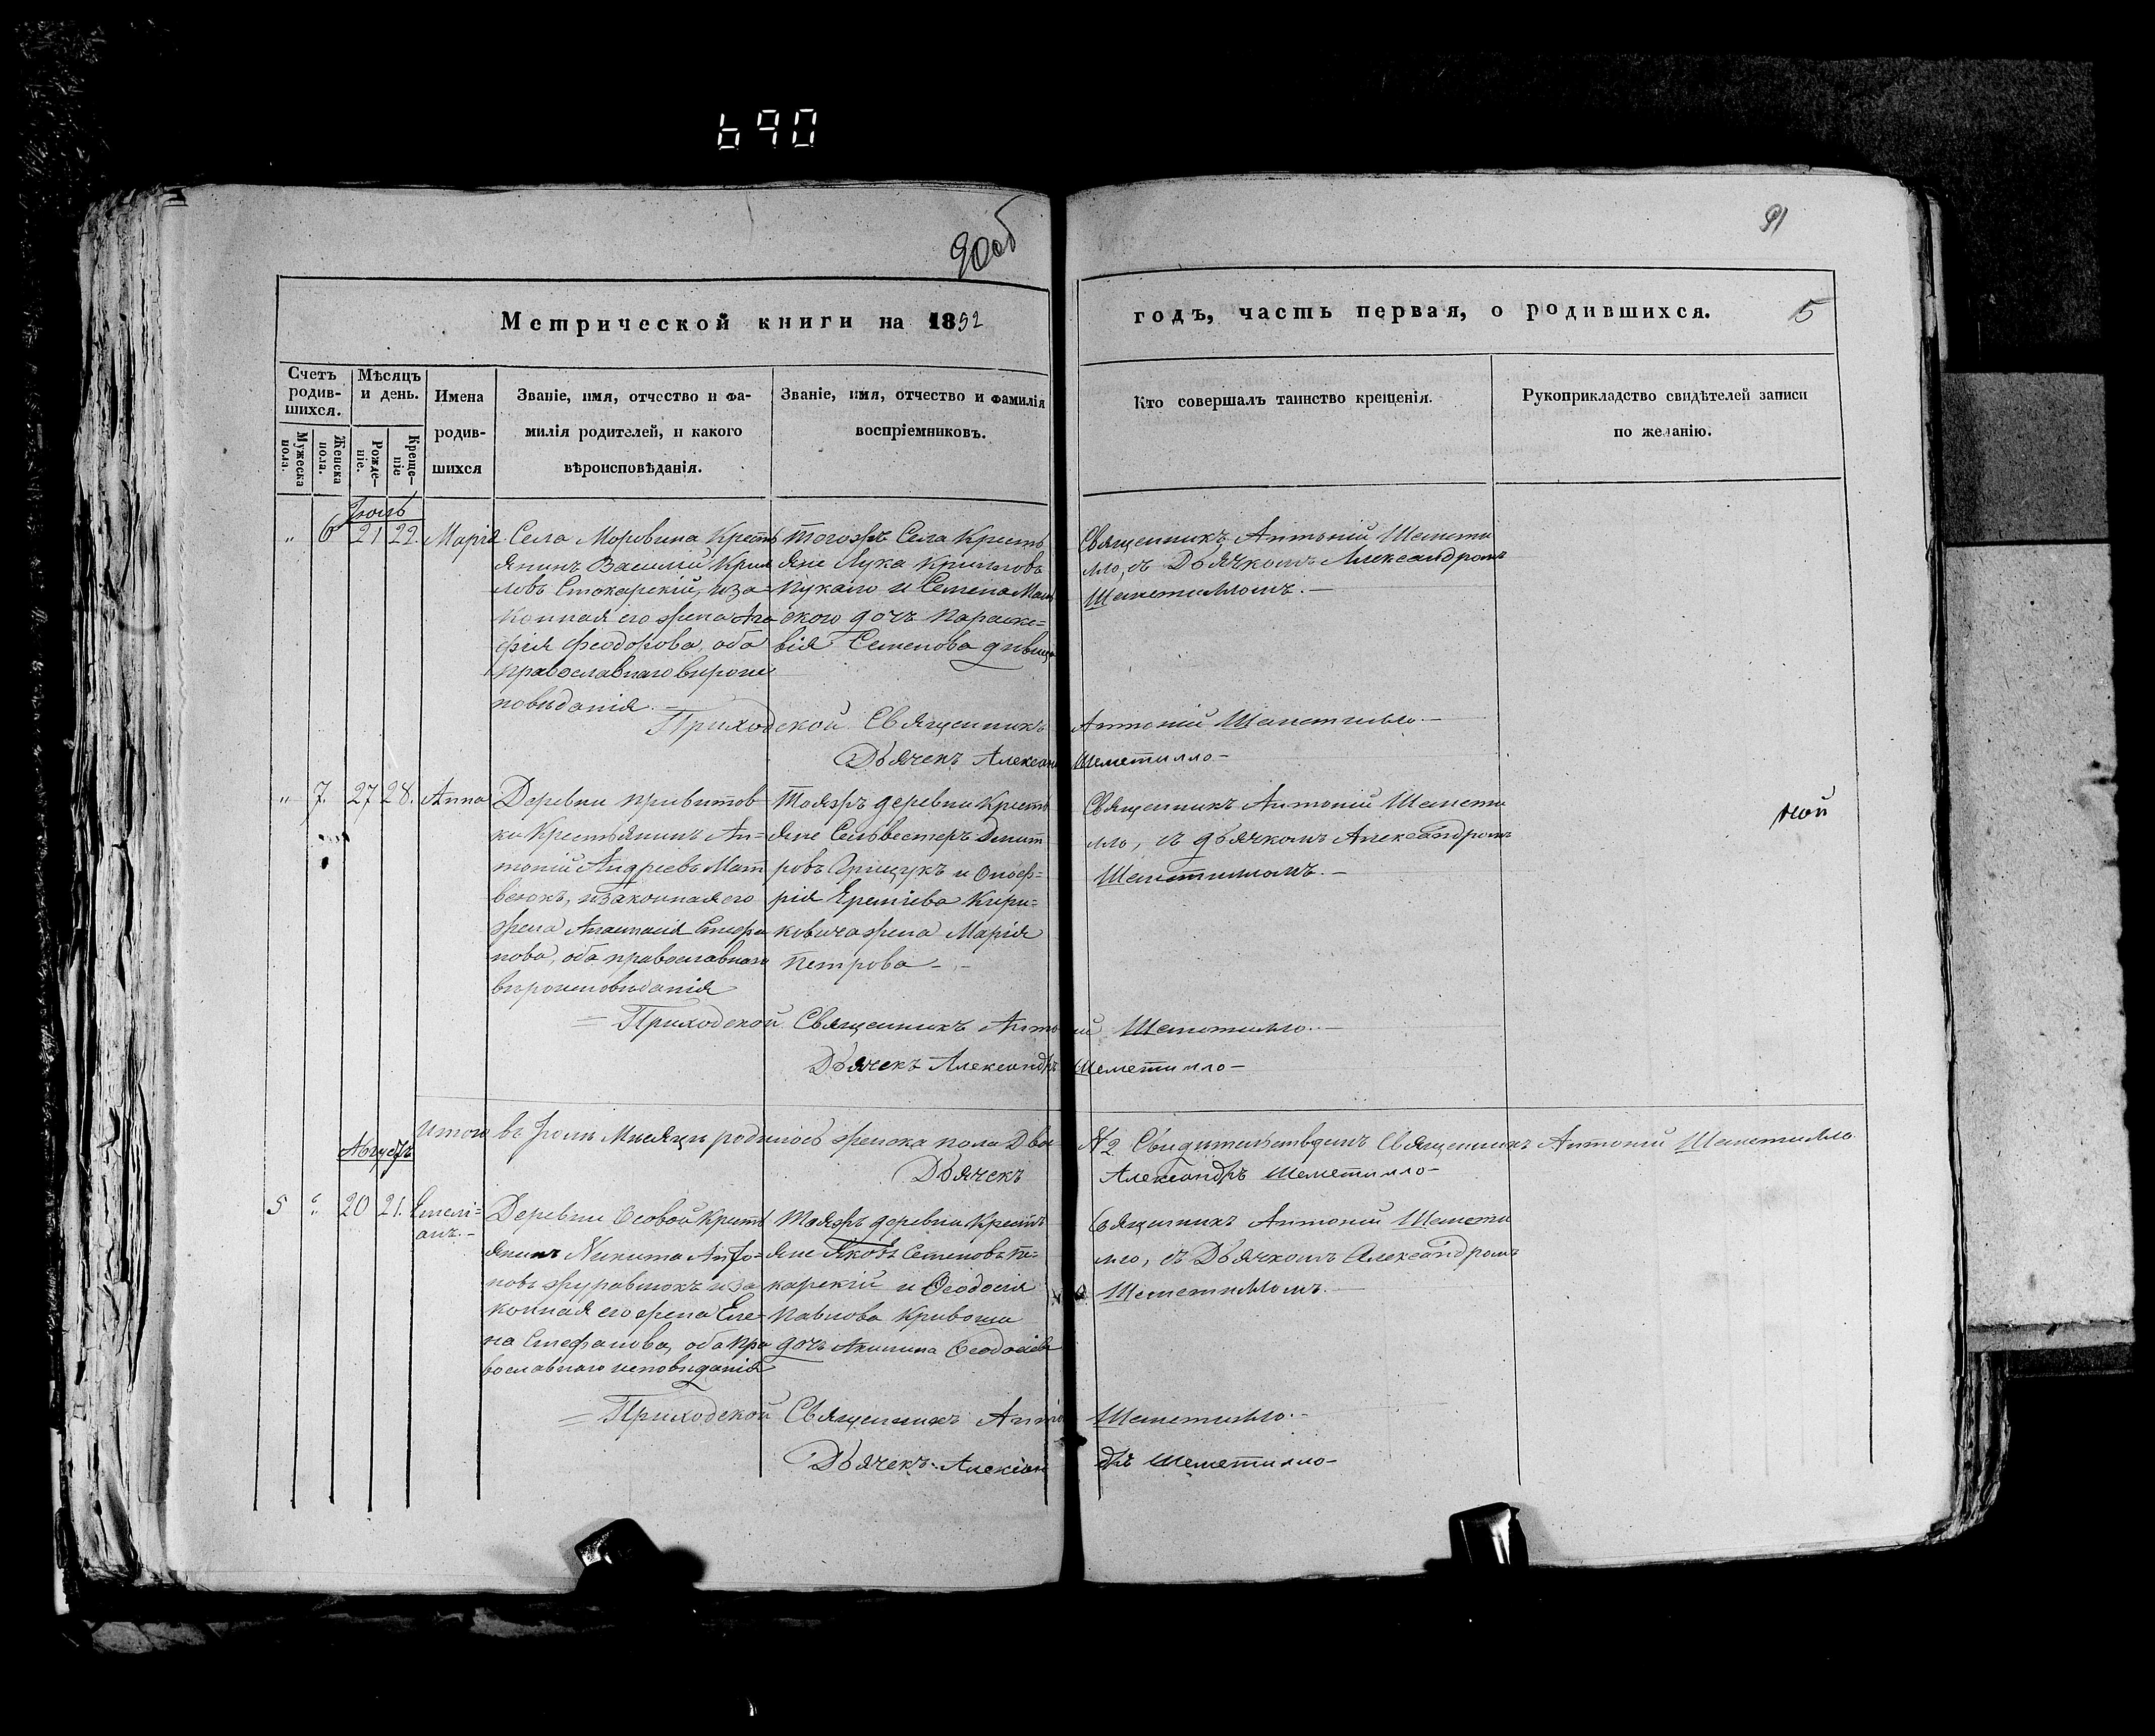 690
90об
91
Метрической книги на 1852
годъ, часть первая, о родившихся.
5
Счетъ родив-шихся.
Мѣсяцъ и день.
Мужеска пола.
Женска пола.
Рожде-ніе.
Креще-ніе
Имена
родив-
шихся
Званіе, имя, отчество и фа-
милія родителей, и какого
вѣроисповѣданія.
Званіе, имя, отчество и фамилія
воспріемниковъ.
Кто совершалъ таинство крещенія.
Рукоприкладство свидѣтелей записи
по желанію.
Іюль
„ 6 21 22. Марія
Села Моровина Кресть
янинъ Василій Кири
ловъ Стокарскій, и за-
конная его жена Ага
фія Феодорова, оба
православнаго вѣроис
повѣданія.
Тогожъ Села Кресть
яне Лука Кириловъ
и Семена
ского дочь Параске=
вія Семенова дѣвица
Священникъ Антоній Шемети
лло, съ Дьячкомъ Александромъ
Шеметилломъ.
Приходской Священникъ Антоній Шеметилло.
Дьячекъ Александръ Шеметилло
„ 7. 27 28. Анна
Деревни Привитов-
ки Крестьянинъ Ан=
тоній Андреевъ Мат
веюкъ, и законная его
жена Анастасія Стефа
нова, оба православнаго
вѣроисповѣданія
Тояжъ деревни Кресть
яне Сельвестеръ Дмит
ровъ Грицукъ и Оноф=
рія Ереміева Кири=
ковича жена Марія
Петрова
Священникъ Антоній Шемети
лло, съ дьячкомъ Александромъ
Шеметилломъ.
Приходской Священникъ Антоній Шеметилло.
Дьячекъ Александръ Шеметилло
Итого въ Іюлѣ Мѣсяцѣ родилось женска пола Два № 2 Свидѣтельствуемъ Священникъ Антоній Шеметилло.
Дьячекъ Александръ Шеметилло
Августъ
5 „ 20 21. Емелі=
анъ.
Деревни Осовой Кресть
янинъ Никита Анто=
новъ Журавлюкъ и за
конная его жена Еле-
на Стефанова, оба пра
вославнаго исповѣданія
Тояжъ деревни Кресть
яне Яковъ Семеновъ То=
карскій и Ѳеодосія
Павлова Кривоша
дочь Акилина Ѳеодосіева
Священникъ Антоній Шемети
лло, съ Дьячкомъ Александромъ
Шеметилломъ.
Приходской Священникъ Антоній Шеметилло.
Дьячекъ Александръ Шеметилло